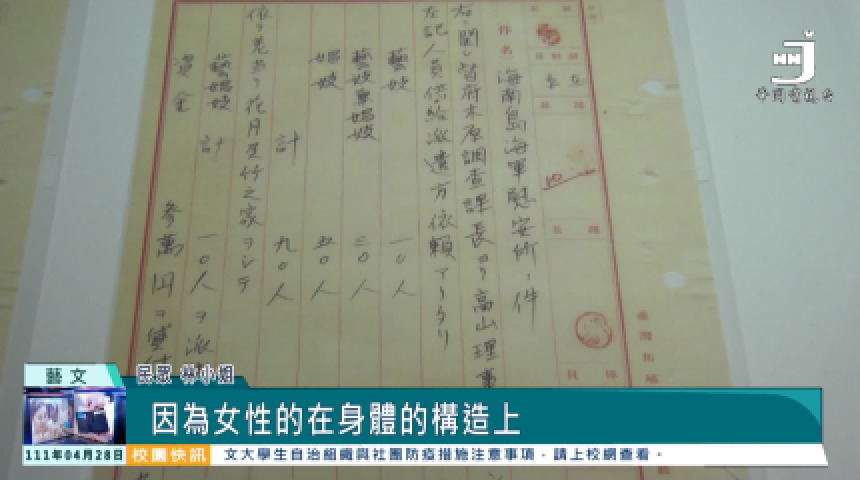 件名 海南島海軍慰安所ノ件
右ニ関シ皆府木原調査課長ヨリ高山理事
左記人員供給派遣方依頼アリタリ
藝妓 一〇人
藝妓兼娼妓 三〇人
娼妓 五〇人
計 九〇人
依テ差当リ花月並竹之家ヲシテ
藝娼妓計 一〇人ヲ派
資金 参萬円ヲ貸
華岡電視台
藝文
民眾 林小姐
因為女性的在身體的構造上
111年04月28日
校園快訊
文大學生自治組織與社團防疫措施注意事項，請上校網查看。